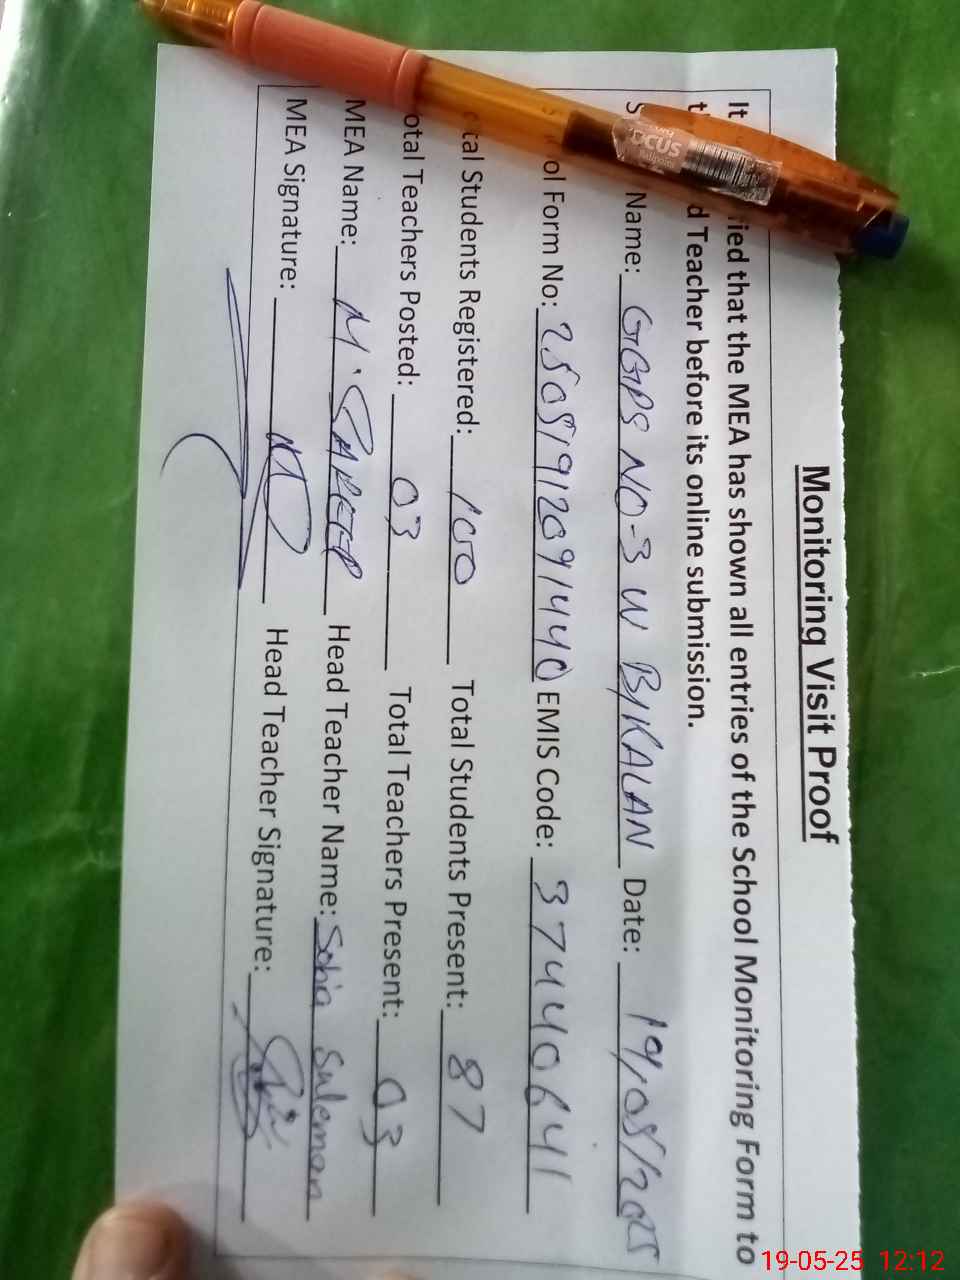 Monitoring Visit Proof
It ied that the MEA has shown all entries of the School Monitoring Form to
d Teacher before its online submission.
Name: GGPS NO-3 W B/KALAN Date: 19/05/2025
ol Form No: EMIS Code: 37440641
tal Students Registered: 100 Total Students Present: 87
otal Teachers Posted: 03 Total Teachers Present: 03
MEA Name: M. Head Teacher Name: Sobia Suleman
MEA Signature: Head Teacher Signature:
FOCUS
19-05-25 12:12